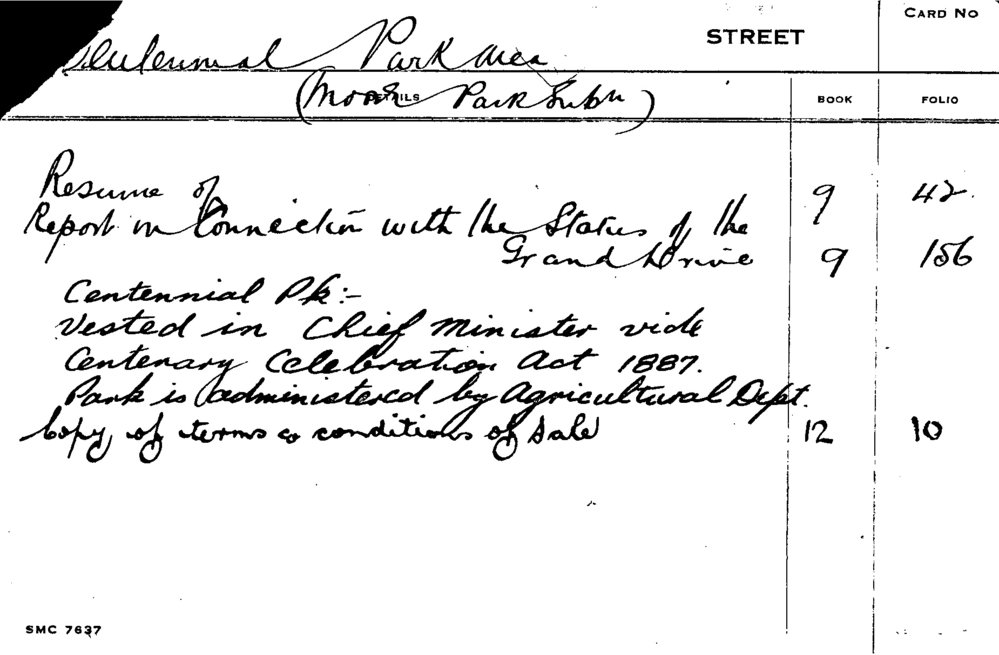 CARD NO
STREET
Centennial Park Area
DETAILS
(Moore Park Subn)
BOOK FOLIO
Resume of 9 42
Report in Connection with the Status of the
Grand Drive 9 156
Centennial Pk:-
Vested in Chief Minister vide
Centenary Celebration Act 1887.
Park is administered by Agricultural Dept.
Copy of terms & conditions of Sale 12 10
SMC 7637